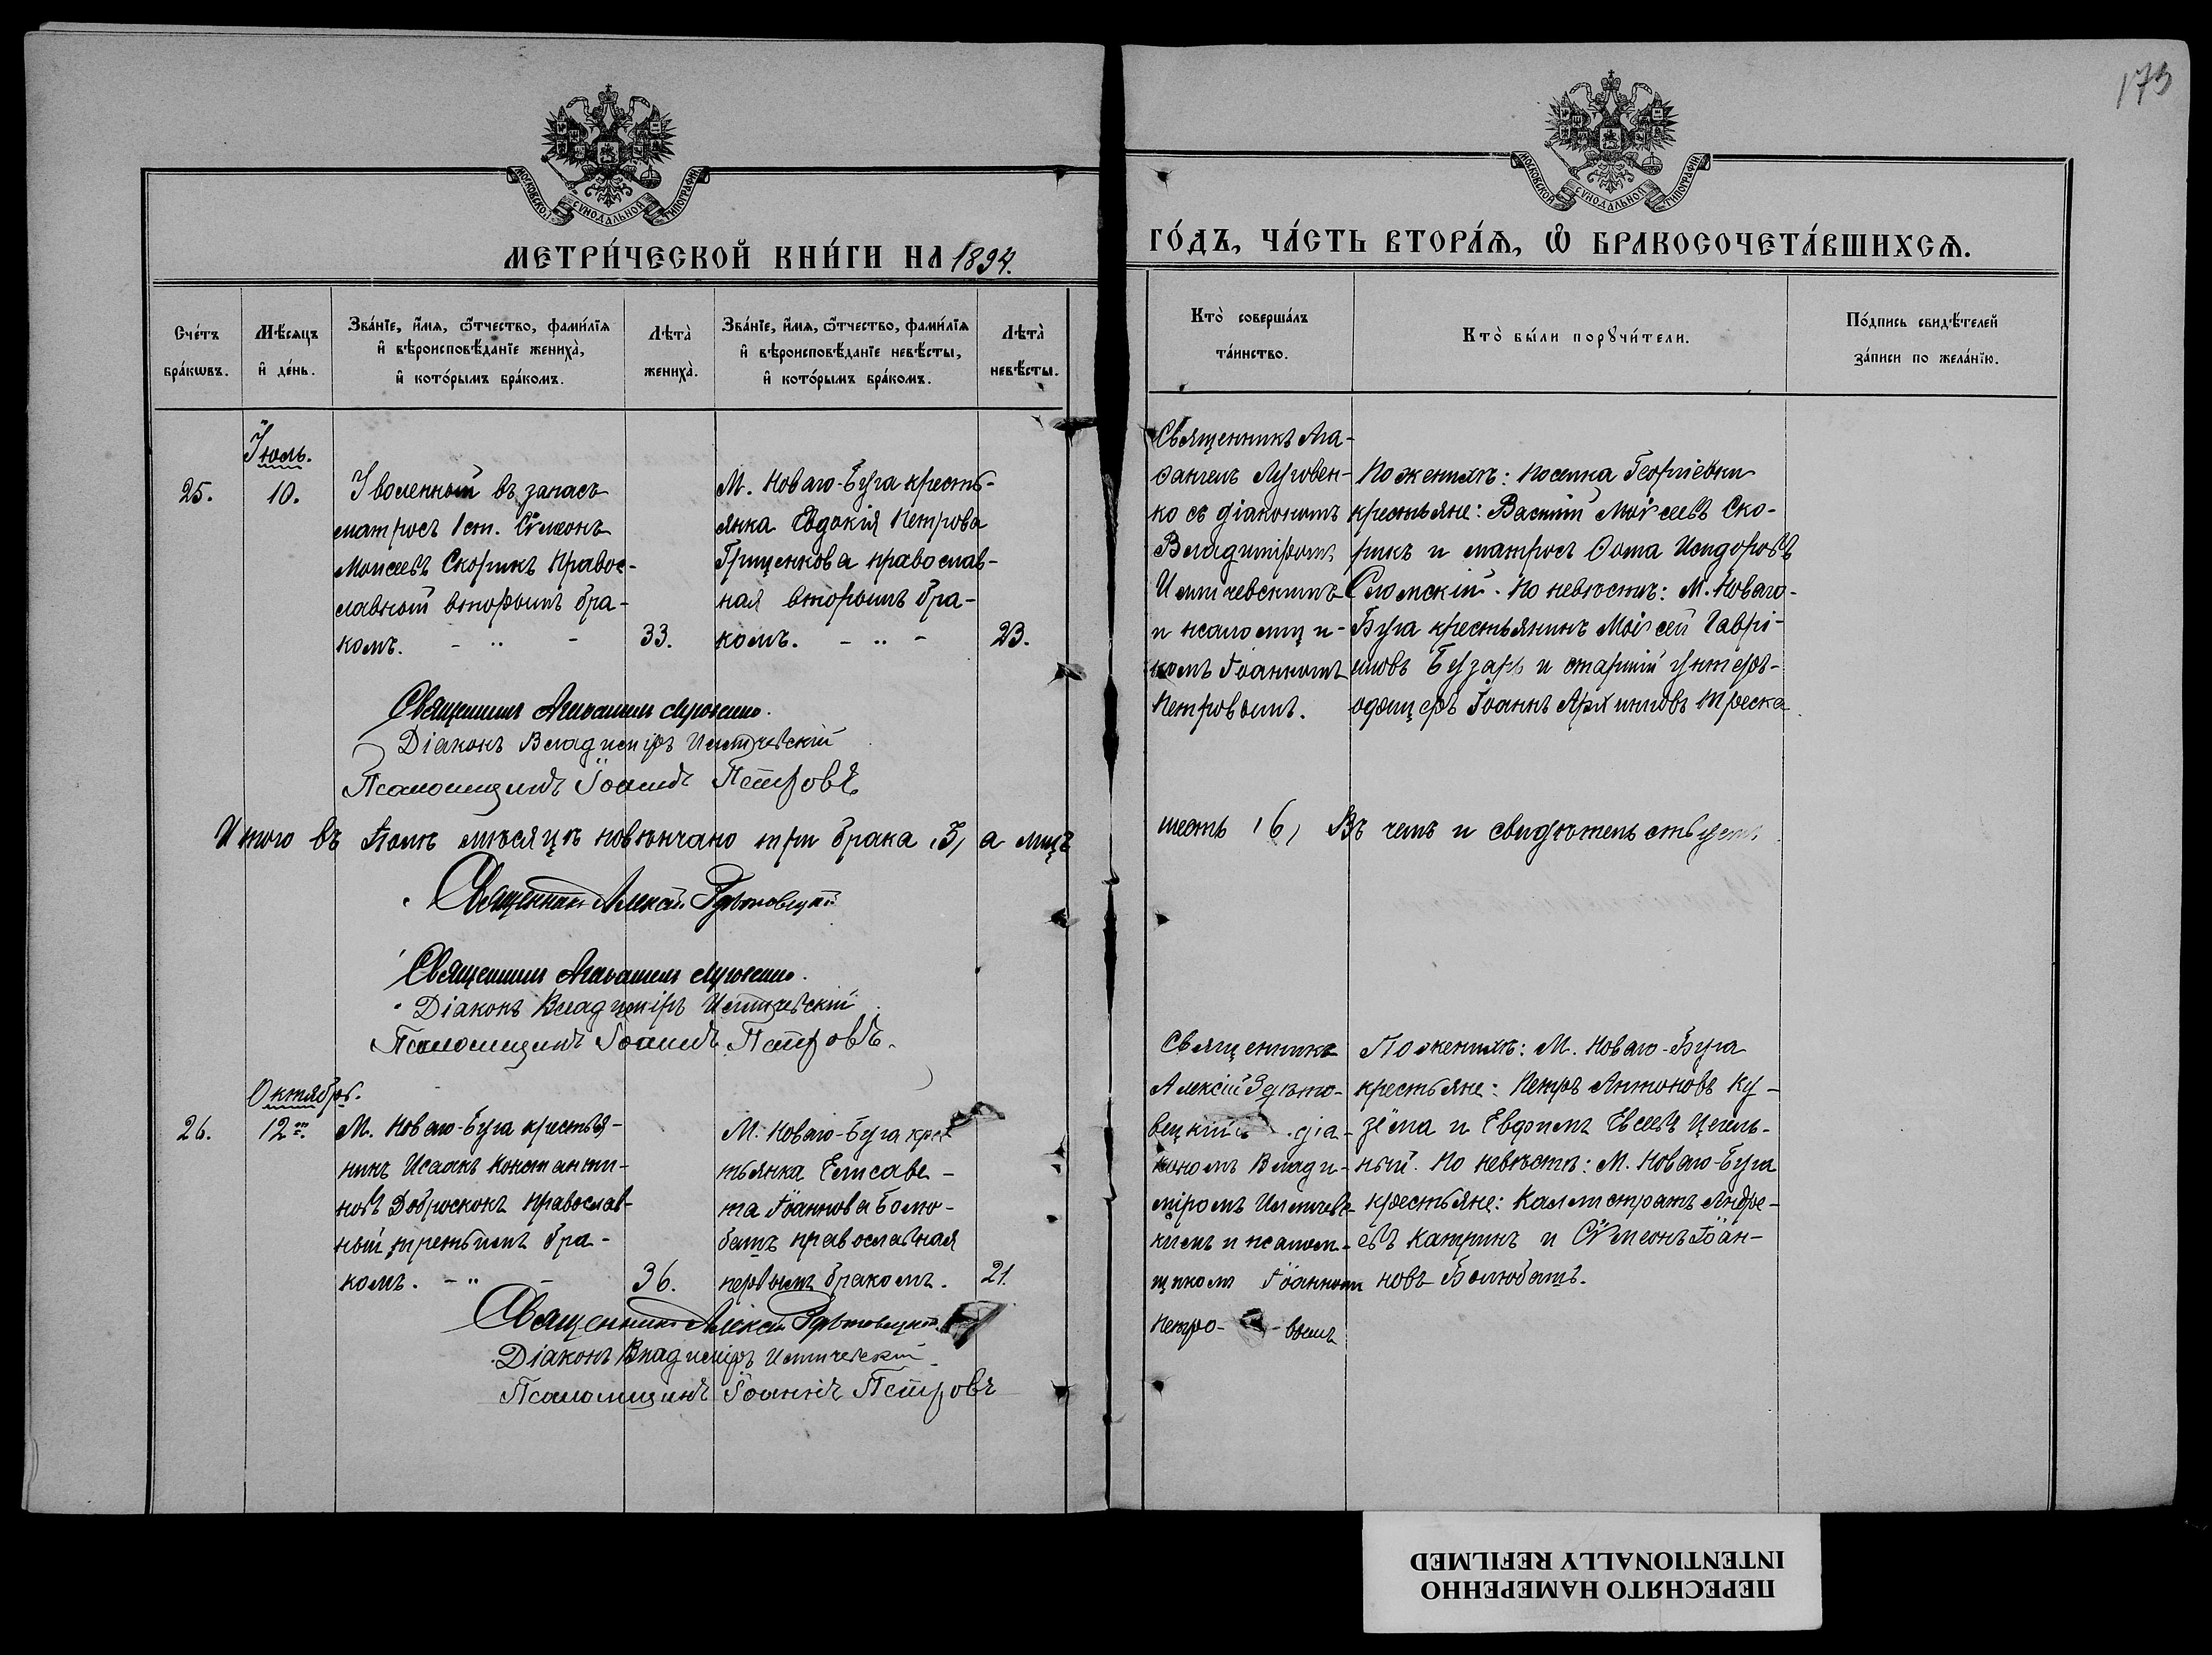 173
МОСКОВСКОЙ СѴНОДАЛЬНОЙ ТИПОГРАФІИ
МОСКОВСКОЙ СѴНОДАЛЬНОЙ ТИПОГРАФІИ
МЕТРИ́ЧЕСКОЙ КНИ́ГИ НА 1894.
ГО́ДЪ, ЧА́СТЬ ВТОРА́Ѧ, Ѽ БРАКОСОЧЕТА́ВШИХСѦ.
Сче́тъ бра́кѡвъ.
Мѣ́сяцъ и҆ де́нь.
Зва́нїе, и҆́мя, ѻ҆́тчество, фами́лїя
и҆ вѣроисповѣ́данїе жениха̀,
и҆ кото́рымъ бра́комъ.
Лѣта̀ жениха̀.
Зва́нїе, и҆́мя, ѻ҆́тчество, фами́лїя
и҆ вѣроисповѣ́данїе невѣ́сты,
и҆ кото́рымъ бра́комъ.
Лѣта̀ невѣ́сты.
Кто̀ соверша́лъ
та́инство.
Кто̀ бы́ли порꙋчи́тели.
По́дпись свидѣ́телей
за́писи по жела́нїю.
Іюль.
25.
10.
Уволенный въ запасъ
матросъ 1 ст. Сѵмеонъ
Моисеевъ Скорикъ правос-
лавный вторымъ бра-
комъ. - „ -
33.
М. Новаго-Буга кресть-
янка Евдокія Петрова
Грищенкова православ-
ная вторымъ бра-
комъ. - „ -
23.
Священникъ Ага-
ѳангелъ Луговен-
ко съ діакономъ
Владиміромъ
Илтичевскимъ
и псаломщи-
комъ Іоанномъ
Петровымъ.
По женихѣ: посёлка Георгіевки
крестьяне: Василій Моѵсеевъ Ско-
рикъ и матросъ Ѳома Исидоровъ
Сломскій. По невѣстѣ: М. Новаго-
Буга крестьянинъ Моѵсей Гаврі-
иловъ Бузарь и старшій унтеръ-
офицеръ Іоаннъ Архиповъ Треска.
Священникъ Агаѳангелъ Луговенко.
Діаконъ Владиміръ Илтичевскій
Псаломщикъ Іоаннъ Петровъ
Итого въ Іюлѣ мѣсяцѣ повѣнчано три брака (3) а лицъ
шесть (6) Въ чемъ и свидѣтельствуемъ.
Священникъ Алексій
Священникъ Агаѳангелъ Луговенко.
Діаконъ Владиміръ Илтичевскій
Псаломщикъ Іоаннъ Петровъ.
Октябрь.
26.
12го.
М. Новаго-Буга крестья-
нинъ Исаакъ Константи-
новъ Доброскокъ православ-
ный третьимъ бра-
комъ. - „ -
36.
М. Новаго-Буга крес
тьянка Елисаве-
та Іоаннова Болю-
башъ православная
первымъ бракомъ.
21.
Священникъ
Алексій
вецкій съ діа-
кономъ Влади-
міромъ Илтичевс-
кимъ и псалом-
щикомъ Іоанномъ
Петро- - вымъ
По женихѣ: М. Новаго-Буга
крестьяне: Петръ Антоновъ Ку-
зёма и Евфимъ Евсеевъ Цегель-
ный. По невѣстѣ: М. Новаго-Буга
крестьяне: Каллистратъ Андре-
евъ Катринъ и Сѵмеонъ Іоан-
новъ Болюбашъ.
Священникъ Алексій
Діаконъ Владиміръ Илтичевскій
Псаломщикъ Іоаннъ Петровъ
INTENTIONALLY REFILMED
ПЕРЕСНЯТО НАМЕРЕННО